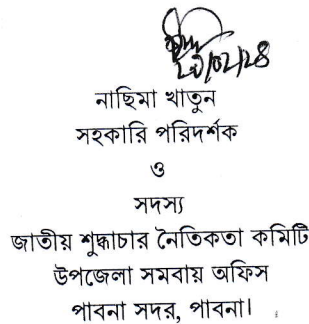 ২০/০২/২৪
নাছিমা খাতুন
সহকারি পরিদর্শক
ও
সদস্য
জাতীয় শুদ্ধাচার নৈতিকতা কমিটি
উপজেলা সমবায় অফিস
পাবনা সদর, পাবনা।